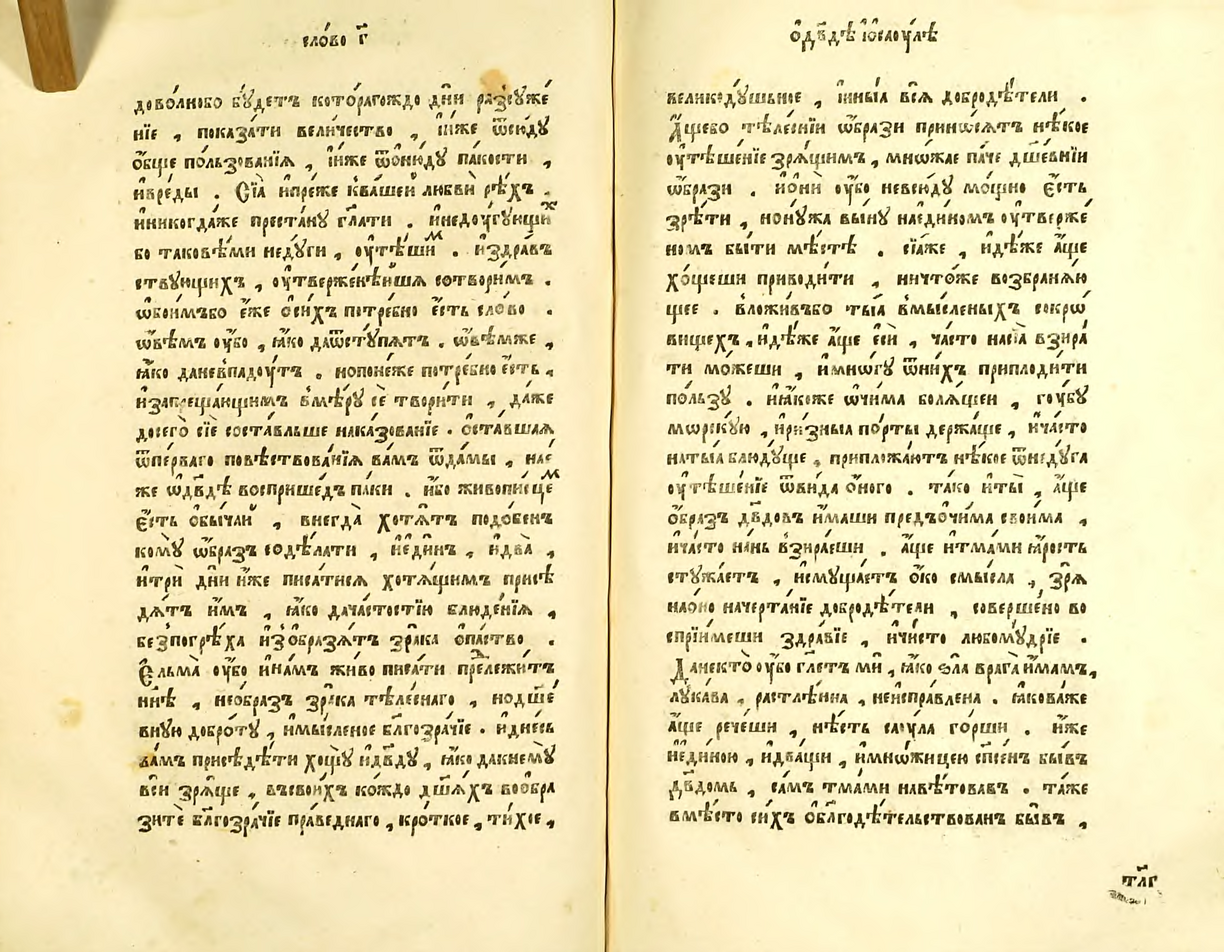 сло́во г҃
дово́лнобо бꙋ́детъ кото́рагождо дн҃и разсꙋже́
нїе , показа́ти вели́чество , и҆́же ѿсю́дꙋ
ѻ҆́бще по́льзованїѧ , и҆́же ѿѻню́дꙋ па́кости ,
и҆вре́ды . Сїѧ̀ и҆пре́же к̾ва́шей любвѝ рѣ́хъ .
и҆никогда́же преста́нꙋ гл҃ати . и҆недꙋ́гꙋющиⷯ
бо таковѣ́ми недꙋ́ги , ᲂу҆тѣ́шиⷨ . и҆здра́въ
ствꙋющихъ , ᲂу҆твержене́йшѧ сотвори́мъ .
ѡ҆бои́мъбо є҆́же ѻ҆си́хъ потре́бно є҆́сть сло́во .
ѻ҆вѣ́мъ ᲂу҆́бо , ꙗ҆́ко даѿстꙋ́пѧтъ . ѻ҆вѣ́мже ,
ꙗ҆́ко даневпадꙋ́тъ . нопоне́же потре́бно є҆́сть ,
и҆запреща́ющимъ в̾мѣ́рꙋ сѐ твори́ти , да́же
досего̀ сїѐ соста́вльше наказа́нїе . ѻ҆ста́вшаѧ
ѿпе́рваго повѣствова́нїѧ ва́мъ ѿда́мы , на́е
же ѡ҆дв҃дѣ восприше́дъ па́ки . и҆́бо живопи́сцеⷨ
є҆́сть ѻ҆бы́чай , внегда̀ хотѧ́тъ подо́бенъ
комꙋ̀ ѡ҆́бразъ содѣ́лати , и҆є҆ди́нъ , и҆два̀ ,
и҆трѝ дни̑ и҆́же писа́тисѧ хотѧ́щимъ присѣ
дѧ́тъ и҆́мъ , ꙗ҆́ко дача́стостїю блюде́нїѧ ,
безпогрѣ́ха и҆з̾ѻбразѧ́тъ зра́ка ѻ҆па́ство .
Є҆льма̀ ᲂу҆́бо и҆на́мъ живо писа́ти прележи́тъ
нн҃ѣ , необразъ зра́ка тѣле́снаго , нодш҃е́
внꙋю добро́тꙋ , и҆мы́сленое бл҃гозра́чїе . и҆дне́сь
ва́мъ присѣдѣ́ти хощꙋ̀ и҆дв҃дꙋ , ꙗ҆́ко дакнемꙋ̀
всѝ зрѧ́ще , въсвои́хъ ко́ждо дш҃а́хъ воѻбра
зи́те бл҃гозра́чїе пра́веднаго , кро́ткое , ти́хое ,
ѻ҆дв҃дѣ и҆ѻ҆саꙋ́лѣ
великодꙋ́шьное , и҆ны́ѧ всѧ̀ добродѣ́тели .
А҆́щебо тѣле́снїи ѡ҆́брази прино́сѧтъ нѣ́кое
ᲂу҆тѣше́нїе зрѧ́щимъ , мно́жае па́че дш҃е́внїи
ѡ҆́брази . и҆ѻ҆нѝ ᲂу҆́бо невсю́дꙋ мо́щно є҆́сть
зрѣ́ти , нонꙋ́жа вы́нꙋ нає҆ди́номъ ᲂу҆твержє́
номъ бы́ти мѣ́стѣ . сїѧ́же , и҆дѣ́же а҆́ще
хо́щеши приводи́ти , ничто́же возбранѧ́ю
щее . вложи́въбо ты́ѧ в̾мы́сленыхъ сокро́
вищехъ , и҆дѣ́же а҆́ще є҆сѝ , ча́сто насїѧ̀ взира́
ти мо́жеши , и҆мно́гꙋ ѿни́хъ приплоди́ти
по́льзꙋ . и҆ꙗ҆́коже ѻ҆чи́ма болѧ́щеи , гꙋ́бꙋ
морскꙋ́ю , и҆ри́зныѧ по́рты держа́ще , и҆ча́сто
наты́ѧ блюдꙋ́ще , прилага́ютъ нѣ́кое ѿнедꙋ́га
ᲂу҆тѣше́нїе ѿви́да ѻ҆́ного . та́ко и҆ты̀ , а҆́ще
ѻ҆́бразъ дв҃довъ и҆́маши предъѻчи́ма свои́ма ,
и҆ча́сто на́нь взира́еши . а҆́ще и҆тма́ми ꙗ҆́рость
стꙋжа́етъ , и҆смꙋща́етъ ѻ҆́ко смы́сла , зрѧ̀
наѻно начерта́нїе добродѣ́тели , соверше́но во
спрїи́меши здра́вїе , и҆чи́сто любомꙋ́дрїе .
Данекто̀ ᲂу҆́бо гл҃етъ мѝ , ꙗ҆́ко ѕла̀ врага̀ и҆́мамъ,
лꙋка́ва , растлѣ́нна , неи҆спра́влена . ꙗ҆кова́же
а҆́ще рече́ши , нѣ́сть саꙋ́ла го́рши . и҆́же
неди́ною , и҆два́щи , и҆мно́жицею сп҃се́нъ бы́въ
дв҃домь , са́мъ тма́ми навѣ́товавъ . та́же
вмѣ́сто си́хъ ѻ҆бл҃годѣ́тельствованъ бы́въ ,
тл҃г